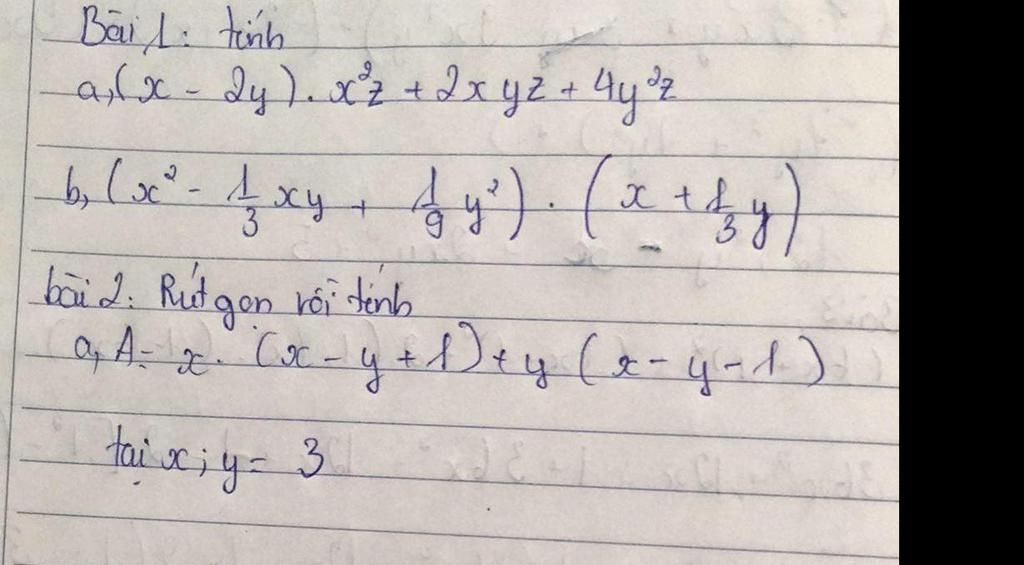 Bài 1: tính
a, (x - 2y) . x²z + 2xyz + 4y²z
b, (x² - 1/3 xy + 1/9 y²) . (x + 1/3 y)
bài 2: Rút gọn rồi tính
a, A = x . (x - y + 1) + y (x - y - 1)
tại x; y = 3